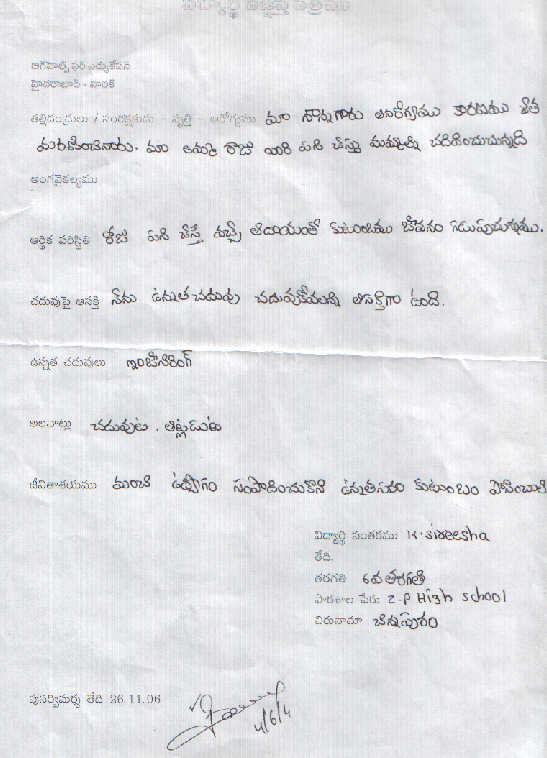 విద్యార్థి విజ్ఞప్తి పత్రము
హైదరాబాద్ -
తల్లిదండ్రులు / సంరక్షకుడు - వృత్తి - ఆరోగ్యము మా నాన్నగారు అనారోగ్యము కారణము చేత
మరణించినారు. మా అమ్మ రోజు కూలి పని చేస్తు మమ్మల్ని చదివించుచున్నది
అంగవైకల్యము
ఆర్థిక పరిస్థితి రోజు పని చేస్తే వచ్చే ఆదాయంతో కుటుంబము జీవనం గడుపుచున్నాము.
చదువుపై ఆసక్తి నేను ఉన్నత చదువు చదువుకోవాలని ఆసక్తిగా ఉంది.
ఉన్నత చదువులు ఇంజనీరింగ్
అలవాట్లు చదువుట, ఆట్లాడుట
జీవితాశయము మంచి ఉద్యోగం సంపాదించుకొని ఉన్నతమైన కుటుంబం
విద్యార్థి సంతకము K. Sireesha
తేది.
తరగతి 6వ తరగతి
పాఠశాల పేరు Z.P High School
చిరునామా
పునర్విమర్శ తేది 26.11.06
4/6/4